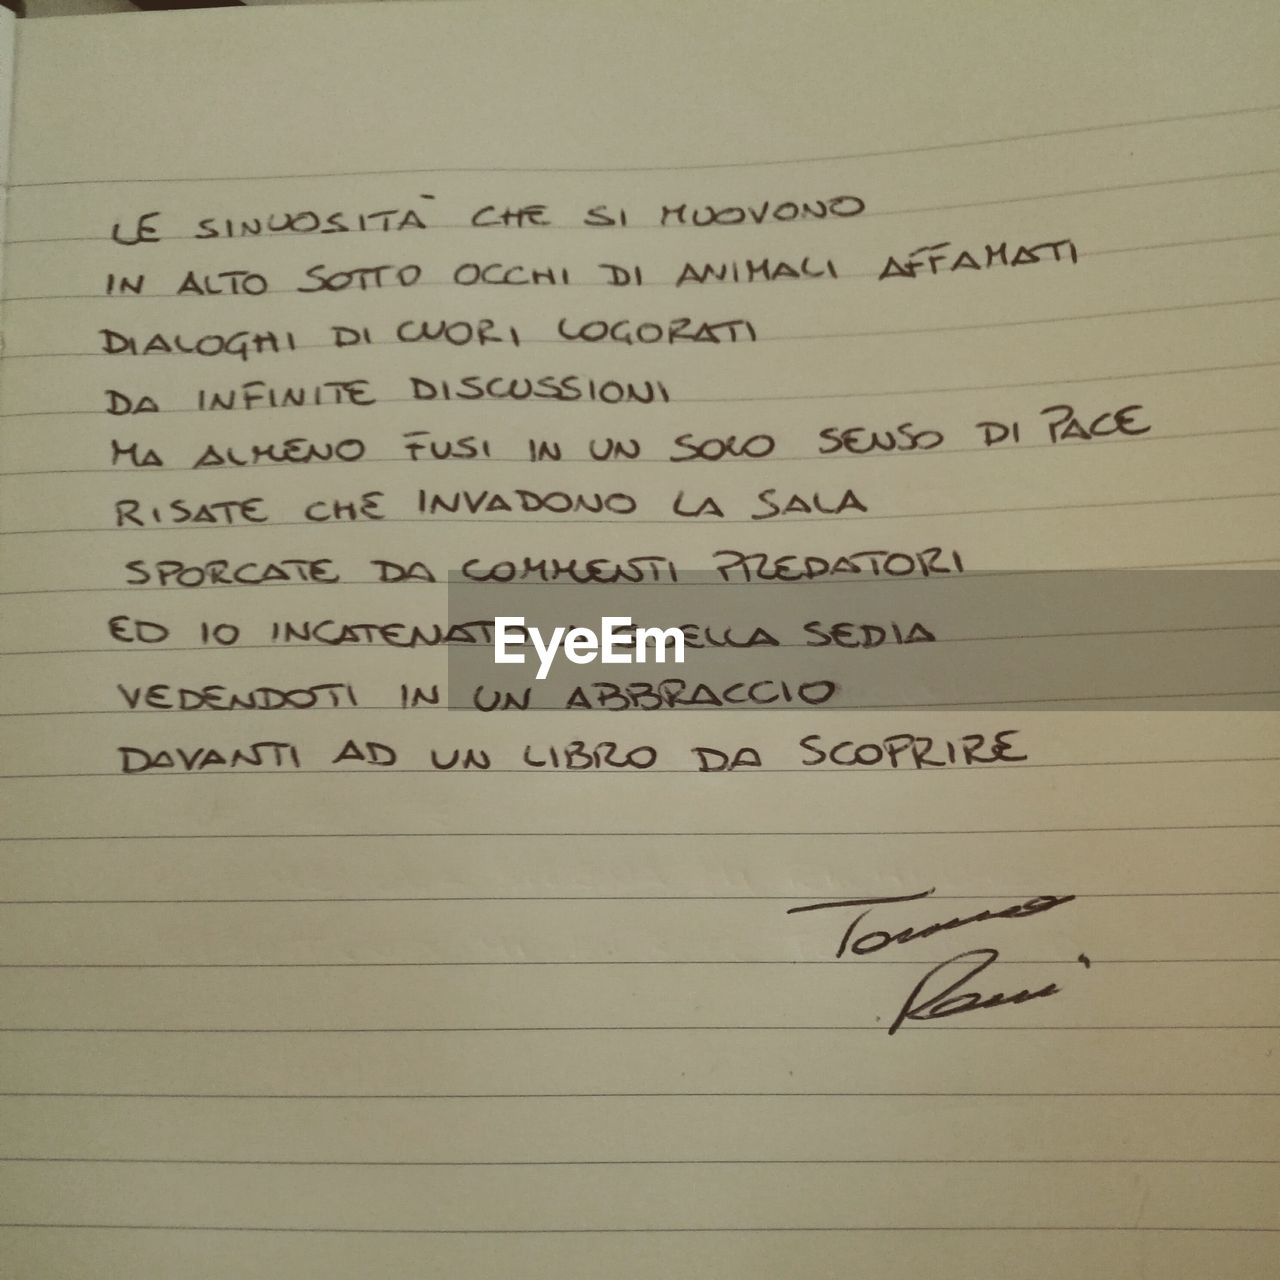 LE SINUOSITÀ CHE SI MUOVONO
IN ALTO SOTTO OCCHI DI ANIMALI AFFAMATI
DIALOGHI DI CUORI LOGORATI
DA INFINITE DISCUSSIONI
MA ALMENO FUSI IN UN SOLO SENSO DI PACE
RISATE CHE INVADONO LA SALA
SPORCATE DA COMMENTI PREDATORI
ED IO INCATENATO A QUELLA SEDIA
EyeEm
VEDENDOTI IN UN ABBRACCIO
DAVANTI AD UN LIBRO DA SCOPRIRE